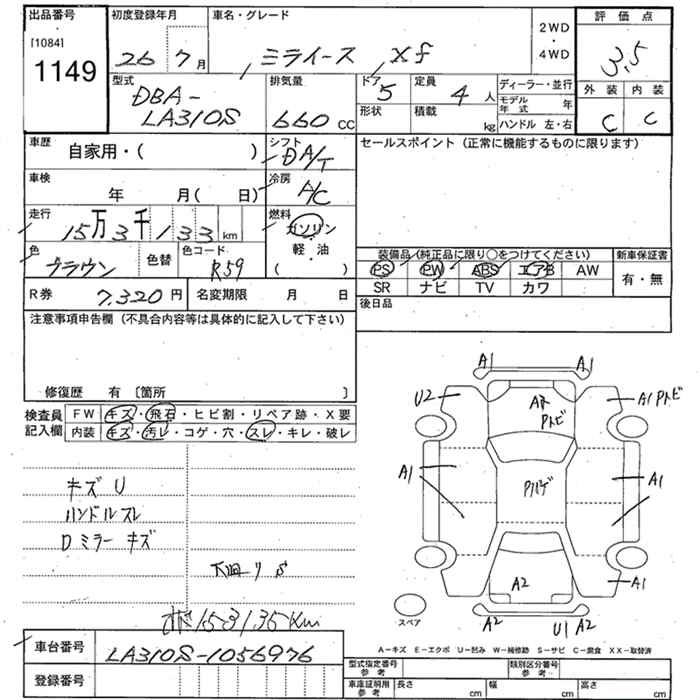 出品番号
[1084]
1149
初度登録年月
26 7月
車名・グレード
ミライース Xf
2WD
・
4WD
評価点
3.5
外装 内装
C C
型式
DBA-
LA310S
排気量
660 cc
ドア
5
定員
4人
形状
積載
kg
ディーラー・並行
モデル年式 年
ハンドル 左・右
車歴
自家用・( )
シフト
DA/T
車検
年 月( 日)
冷房
A/C
走行
15万3千133km
燃料
ガソリン
・
軽・油
( )
色
ブラウン
色替
色コード
R59
R券 7,320円
名変期限 月 日
セールスポイント (正常に機能するものに限ります)
装備品 (純正品に限り○をつけてください)
新車保証書
PS PW ABS エアB AW
SR ナビ TV カワ
有・無
後日品
注意事項申告欄 (不具合内容等は具体的に記入して下さい)
修復歴 有 〔箇所 〕
検査員記入欄
FW キズ・飛石・ヒビ割・リペア跡・X要
内装 キズ・汚レ・コゲ・穴・スレ・キレ・破レ
キズ U
ハンドルスレ
Dミラーキズ
153135Km
A1 A1
U2
Aア
Pトビ
A1 Pトビ
A1
Pハゲ
A1
A2
A1
スペア
A2
U1 A2
A-キズ E-エクボ U-凹み W-補修跡 S-サビ C-腐食 XX-取替済
車台番号
LA310S-1056976
登録番号
型式指定番号 参考
類別区分番号 参考
車庫証明用 参考
長さ cm
幅 cm
高さ cm